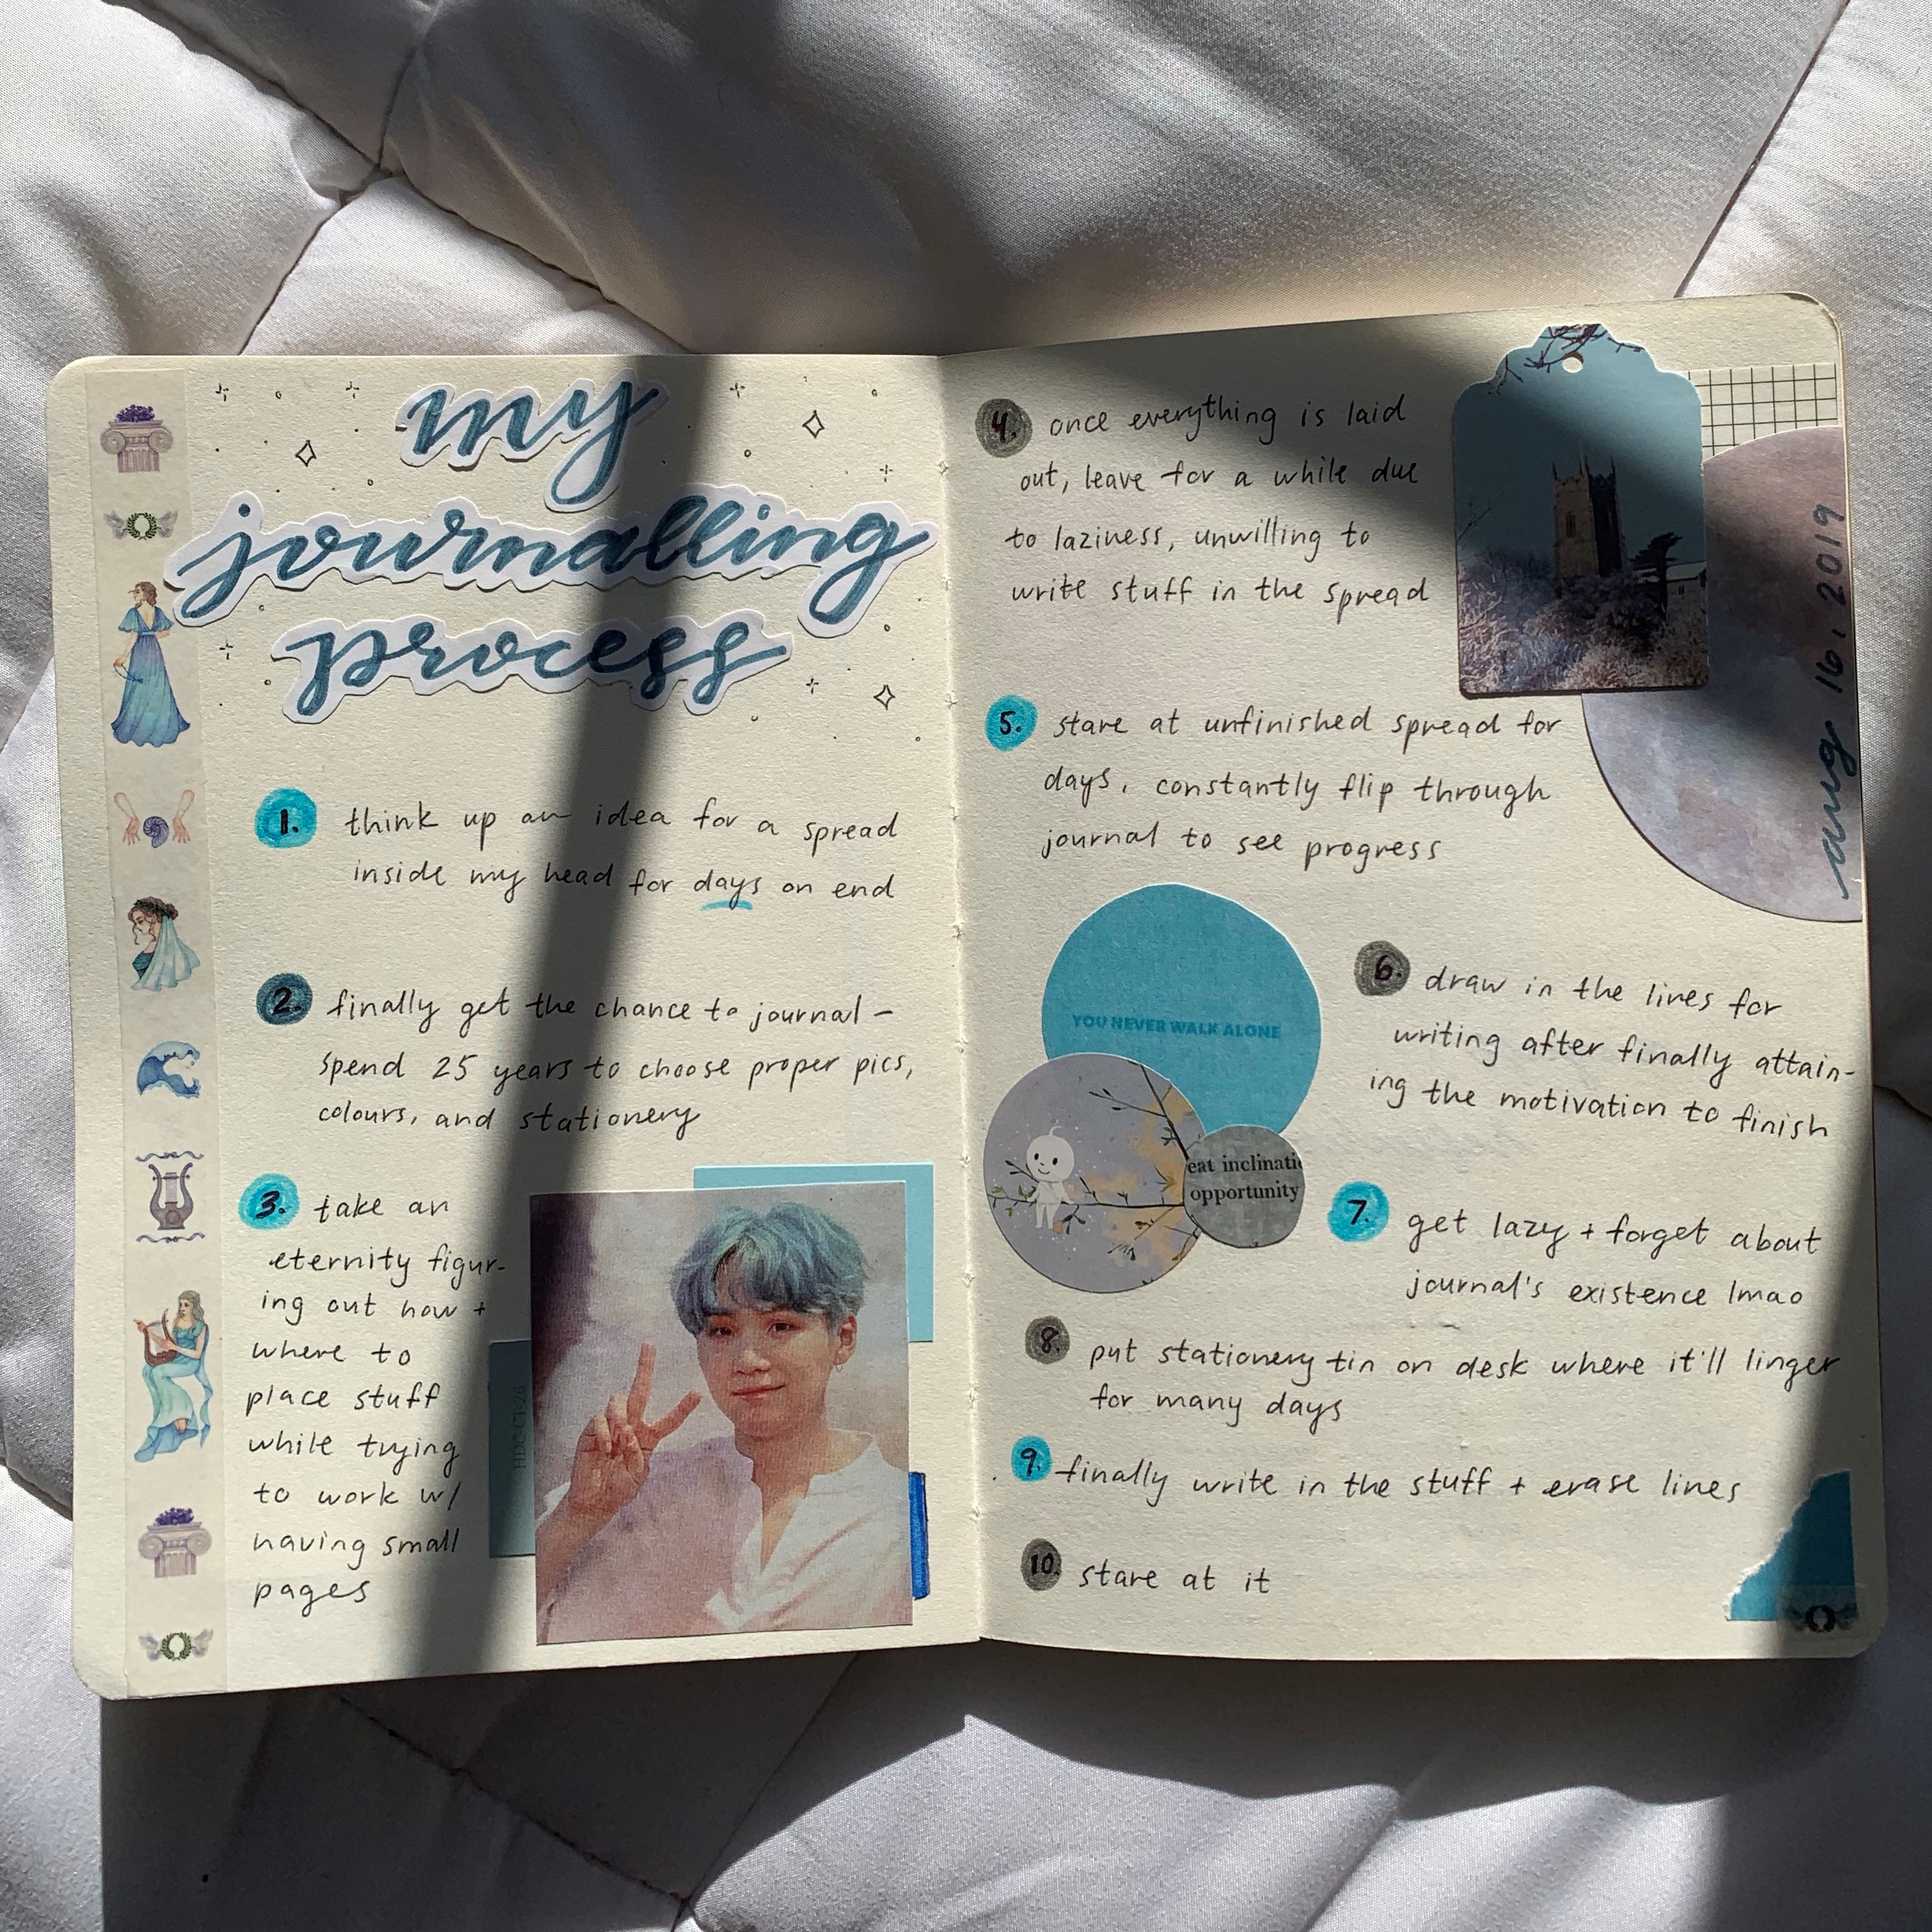 my
journalling
process
1. think up an idea for a spread
inside my head for days on end
2. finally get the chance to journal -
spend 25 years to choose proper pics,
colours, and stationery
3. take an
eternity figur-
ing out how +
where to
place stuff
while trying
to work w/
having small
pages
4. once everything is laid
out, leave for a while due
to laziness, unwilling to
write stuff in the spread
aug 16, 2019
5. stare at unfinished spread for
days, constantly flip through
journal to see progress
YOU NEVER WALK ALONE
eat inclinati
opportunity
6. draw in the lines for
writing after finally attain-
ing the motivation to finish
7. get lazy + forget about
journal's existence lmao
8. put stationery tin on desk where it'll linger
for many days
9. finally write in the stuff + erase lines
10. stare at it